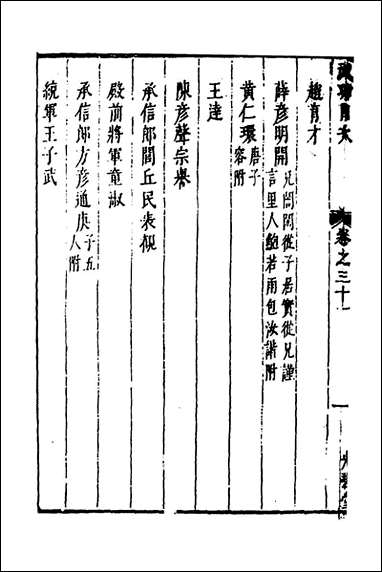 卷之三十一
趙育才
薛彦明開 兄誾閑從子居實從兄謹言里人鮑若雨包汝諧附
黃仁環 唐子容附
王逵
陳彦聲宗譽
承信郎閭丘民表觀
殿前將軍童淑
承信郎方彦通庚 子五人附
統軍王子武